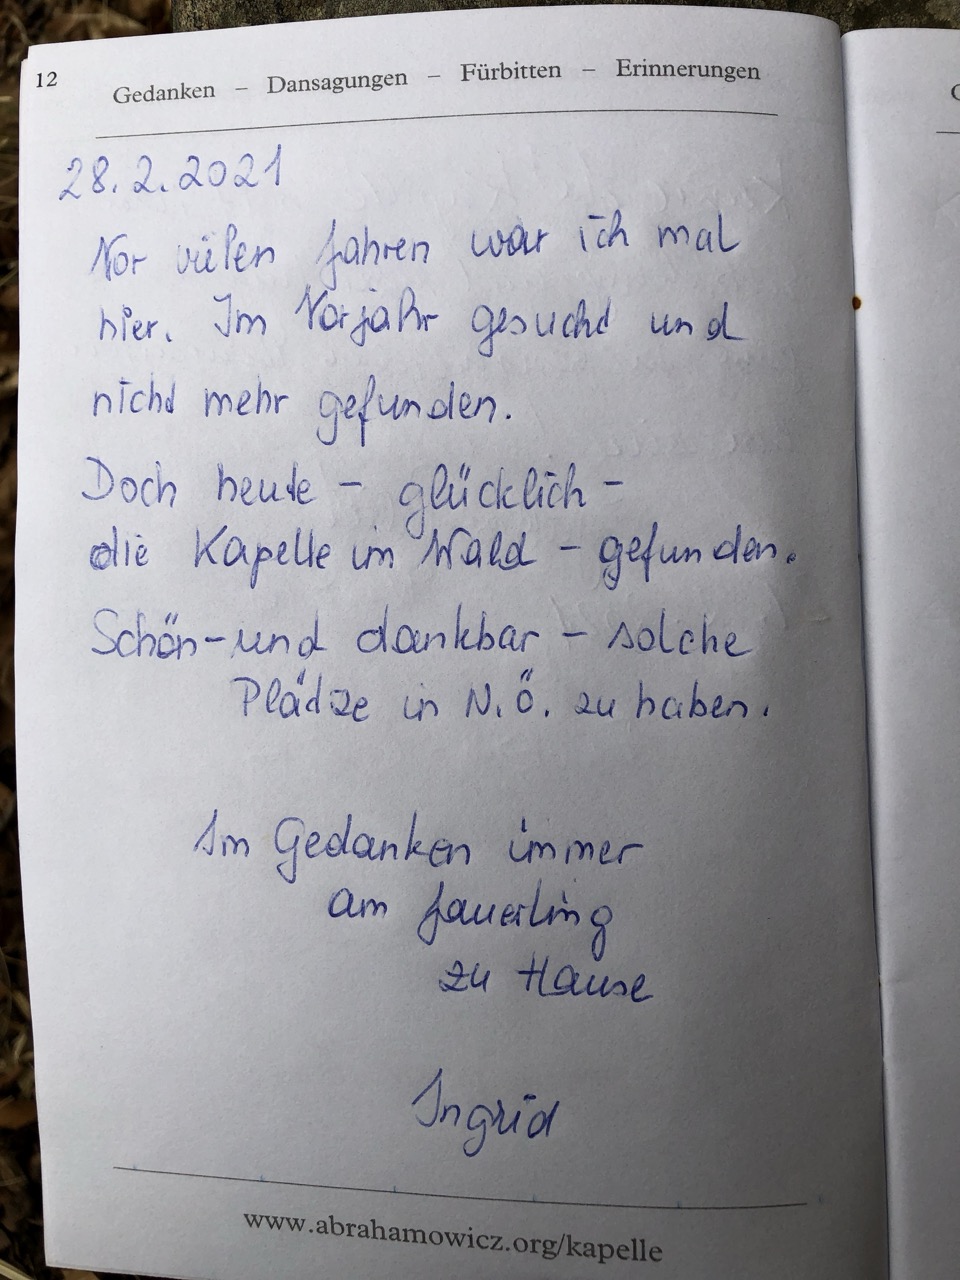 12
Gedanken – Dansagungen – Fürbitten – Erinnerungen
28.2.2021
Vor vielen Jahren war ich mal
hier. Im Vorjahr gesucht und
nicht mehr gefunden.
Doch heute – glücklich –
die Kapelle im Wald – gefunden.
Schön – und dankbar – solche
Plätze in N.Ö. zu haben.
Im Gedanken immer
am Jauerling
zu Hause
Ingrid
www.abrahamowicz.org/kapelle